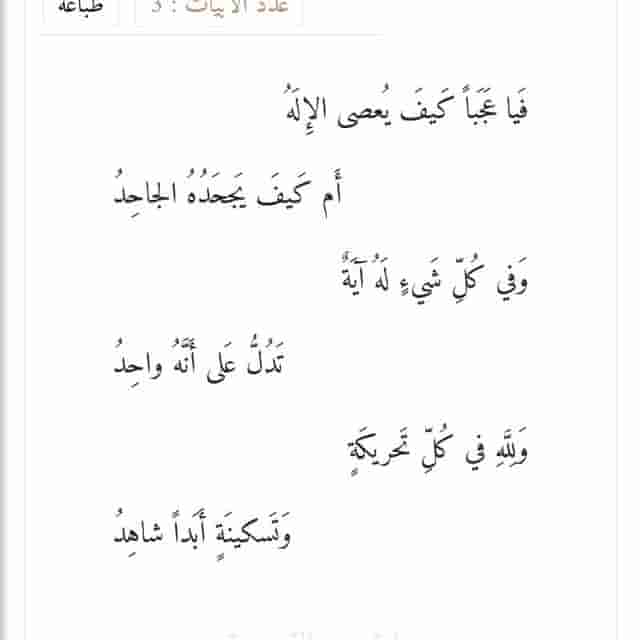 عدد الأبيات : 3 طباعة
فَيا عَجَباً كَيفَ يُعصى الإِلَهُ
أَم كَيفَ يَجحَدُهُ الجاحِدُ
وَفي كُلِّ شَيءٍ لَهُ آيَةٌ
تَدُلُّ عَلى أَنَّهُ واحِدُ
وَلِلَّهِ في كُلِّ تَحريكَةٍ
وَتَسكينَةٍ أَبَداً شاهِدُ